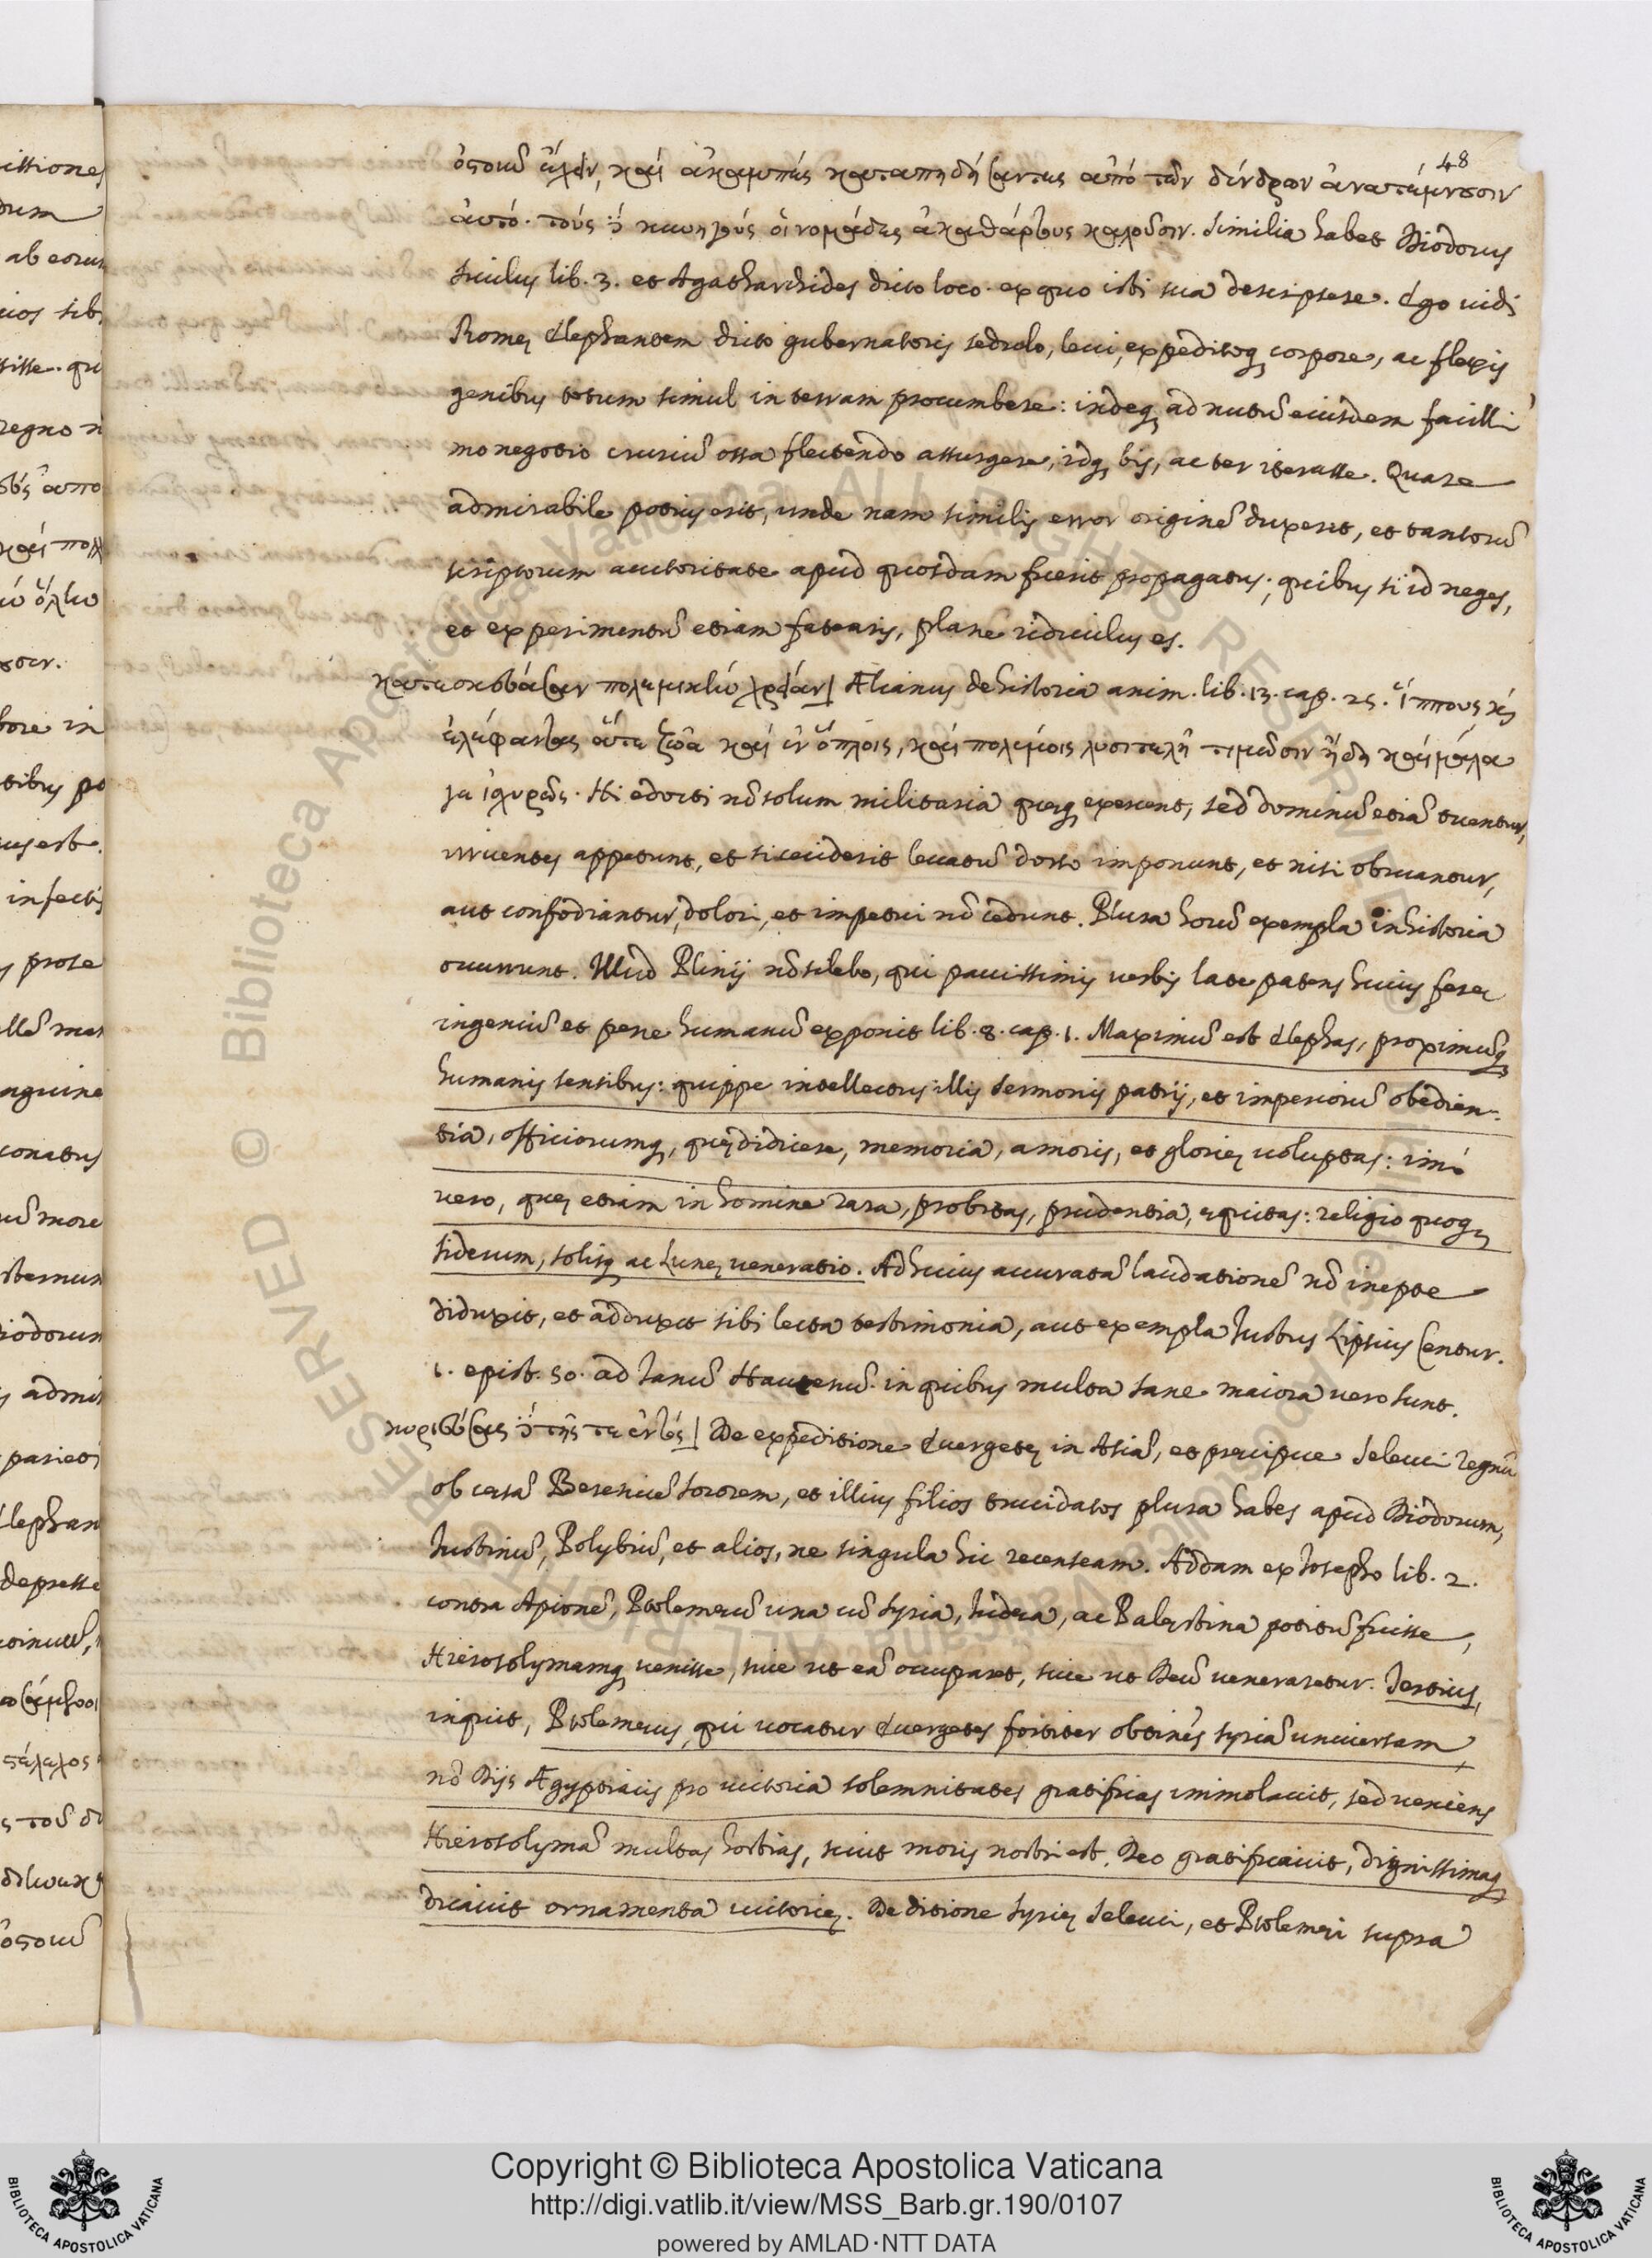 48
ὀστοῦν ἔχειν, καὶ ἀκαμπές καταπηδήσαντες ἀπό τῶν δένδρων ἀνατέμνουσιν
αὐτό. τούς δὲ κυνηγούς οἱ νομάδες ἀκαθάρτους καλοῦσιν. Similia habet Diodorus
siculus lib. 3. et Agatharchides dicto loco. ex quo isti sua descripsere. Ego uidi
Romę Elephantem dicto gubernatoris sedulo, leui, expeditoq; corpore, ac flexis
genibus totum simul in terram procumbere: indeq; ad nutū eiusdem facilli
mo negotio cruriū ossa flectendo assurgere, idq; bis, ac ter iterasse. Quare
admirabile potius erit, unde nam similis error originē duxerit, et tantorū
scriptorum auctoritate apud quosdam fuerit propagatus; quibus si id neges,
et experimentū etiam fatearis, plane ridiculus es.
κατασκευάσαν πολεμικὴν χρείαν| Ælianus de historia anim. lib. 13. cap. 25. ἵππους, κὶ
ἐλέφαντας ἅτε ζῶα καὶ ἐν ὅπλοις, καὶ πολέμοις λυσιτελῆ τιμῶσιν ἤδη καὶ μάλα
γε ἰσχυρῶς. Hi edocti nō solum militaria quęq; exercent, sed dominū etiā tuentur,
irruentes appetunt, et si ceciderit leuatū dorso imponunt, et nisi obruantur,
aut confodiantur, dolori, et impetui nō cedunt. Plura horū exempla in historia
occurrunt. Illud Plinij nō silebo, qui paucissimis uerbis late patens huius ferę
ingeniū et pene humanū exponit lib. 8. cap. 1. Maximū est Elephas, proximūq;
humanis sensibus: quippe intellectus illis sermonis patrij, et imperiorū obedien-
tia, officiorumq;, quę didicere, memoria, amoris, et glorię uoluptas: imò
uero, quę etiam in homine rara, probitas, prudentia, ęquitas: religio quoq;
siderum, solisq; ac Lunę ueneratio. Ad huius accuratā laudationē nō inepte
diduxit, et adduxit sibi lecta testimonia, aut exempla Iustus Lipsius Centur.
1. epist. 50. ad Ianū Hautenū. in quibus multa sane maiora uero sunt.
κυριεύσας δὲ τῆς τε ἐντός| De expeditione Euergetę in Asiā, et precipue Seleuci regnū
ob cęsā Berenicē sororem, et illius filios trucidatos plura habes apud Diodorum,
Iustinū, Polybiū, et alios, ne singula hic recenseam. Addam ex Iosepho lib. 2.
contra Apionē, Ptolemęū una cū Syria, Iudęa, ac Palęstina potitū fuisse,
Hierosolymamq; uenisse, siue ut eā occuparet, siue ut Deū ueneraretur. Tertius,
inquit, Ptolemęus, qui uocatur Euergetes fortiter obtinēs Syriā uniuersam,
nō Dijs Ægyptiacis pro uictoria solemnitates gratificas immolauit, sed ueniens
Hierosolymā multas hostias, sicut moris nostri est, Deo gratificauit, dignissimaq;
dicauit ornamenta uictorię. De ditione Syrię Seleuci, et Ptolemęi supra
Copyright © Biblioteca Apostolica Vaticana
http://digi.vatlib.it/view/MSS_Barb.gr.190/0107
powered by AMLAD·NTT DATA